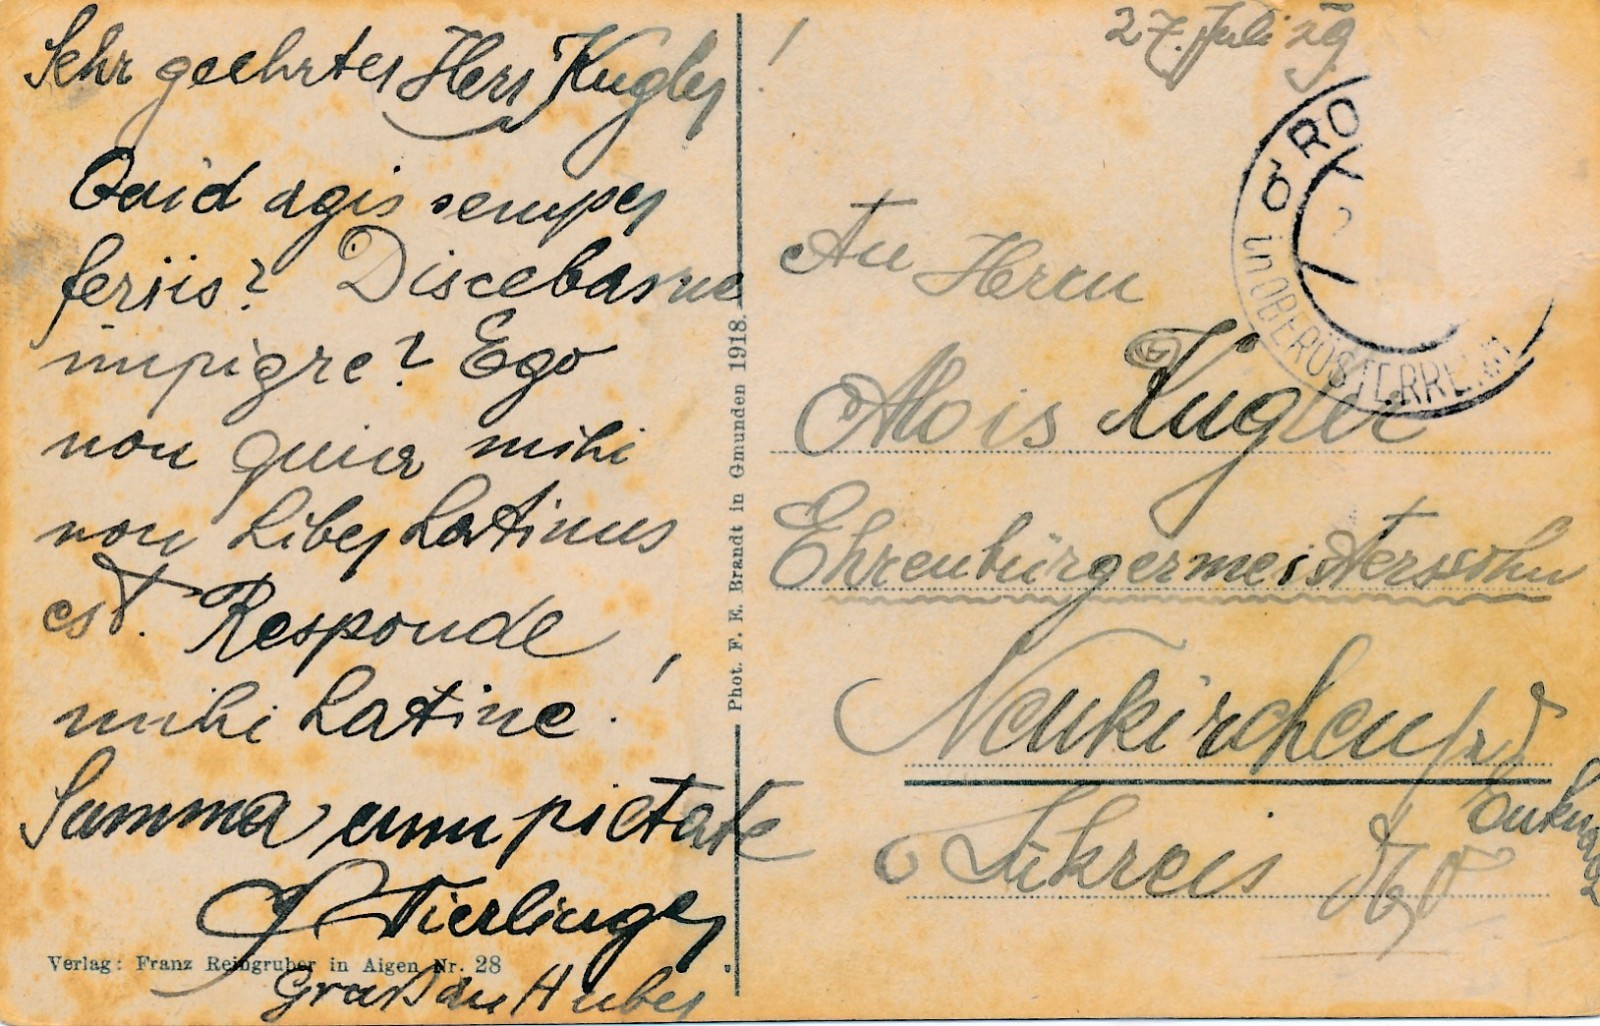 Sehr geehrter Herr Kugler!
Quid agis semper
feriis? Discebasne
impigre? Ego
non quia mihi
non liber Latinus
est. Responde
mihi Latine!
Summa cum pietate
Tierlinger
Gruß an Huber
Verlag: Franz Reingruber in Aigen Nr. 28
Phot. F. E. Brandt in Gmunden 1918.
27. Juli 29
RO
in OBERÖSTERREICH
An Herrn
Alois Kugler
Ehrenbürgermeisterssohn
Neukirchen